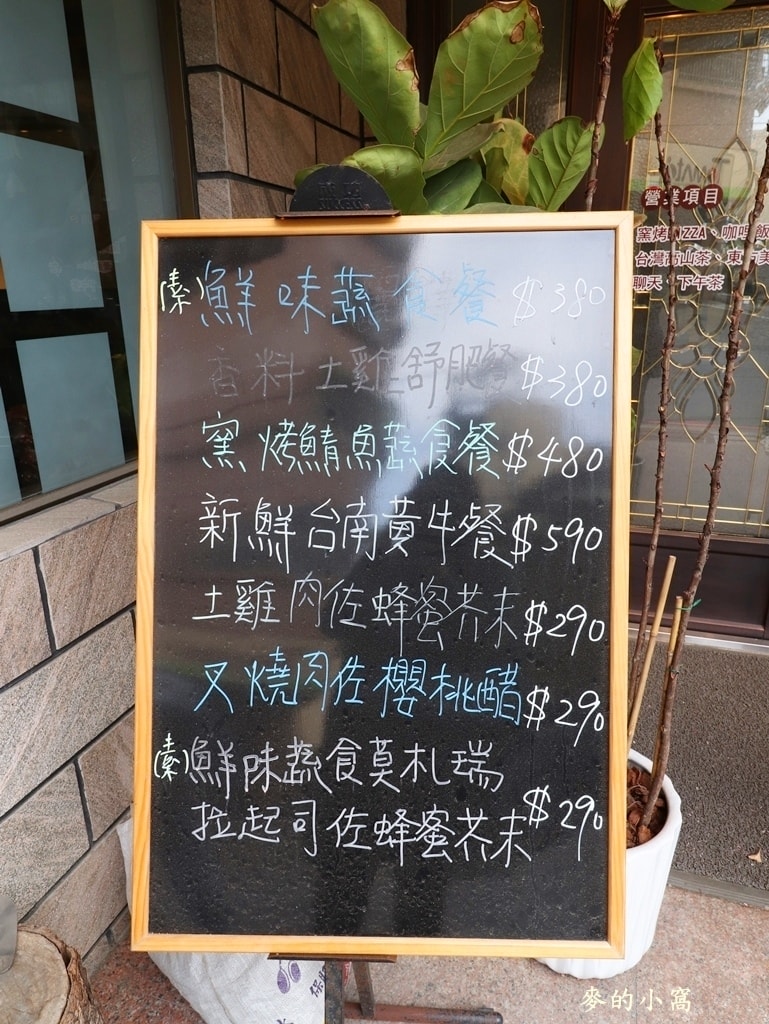 (素)鮮味蔬食餐 $380
香料土雞舒肥餐 $380
窯烤鯖魚蔬食餐 $480
新鮮台南黃牛餐 $590
土雞肉佐蜂蜜芥末 $290
叉燒肉佐櫻桃醋 $290
(素)鮮味蔬食莫札瑞
拉起司佐蜂蜜芥末 $290
營業項目
窯烤PIZZA、咖哩飯
聊天、下午茶
麥的小窩